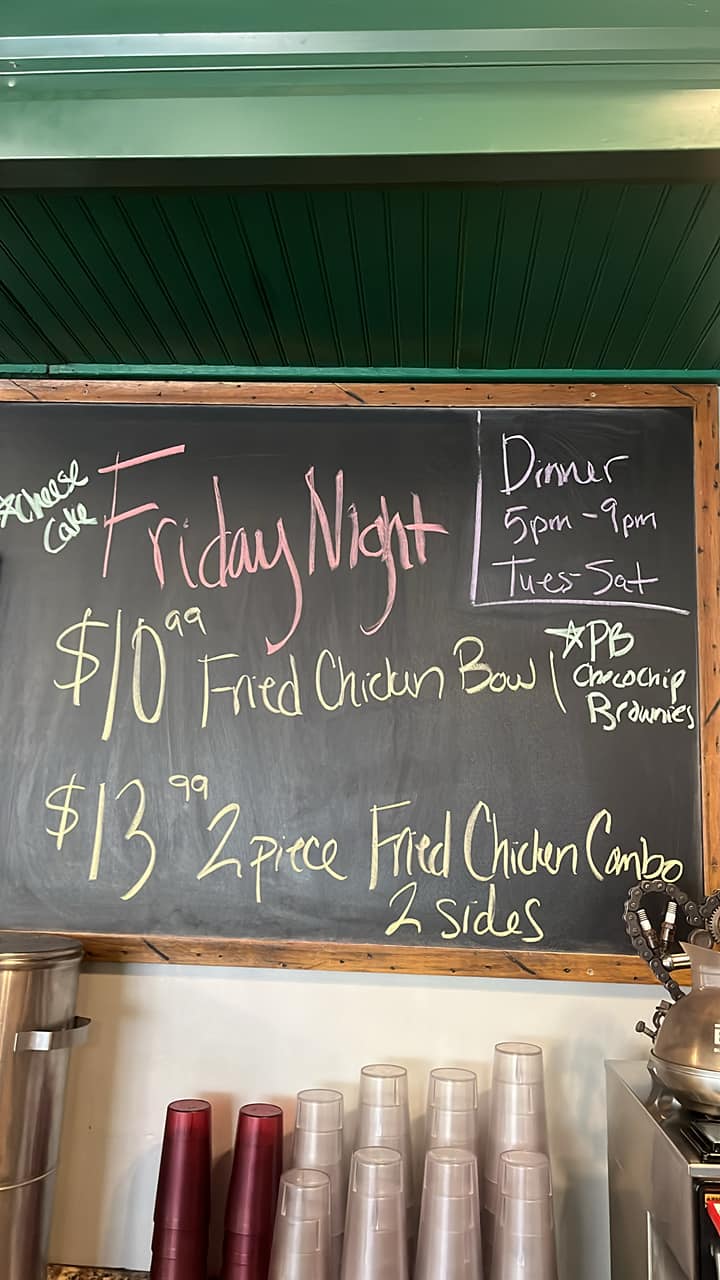 ☆Cheese
Cake
Friday Night
Dinner
5pm-9pm
Tues-Sat
$10⁹⁹ Fried Chicken Bowl
☆PB
Chocochip
Brownies
$13⁹⁹ 2 piece Fried Chicken Combo
2 sides